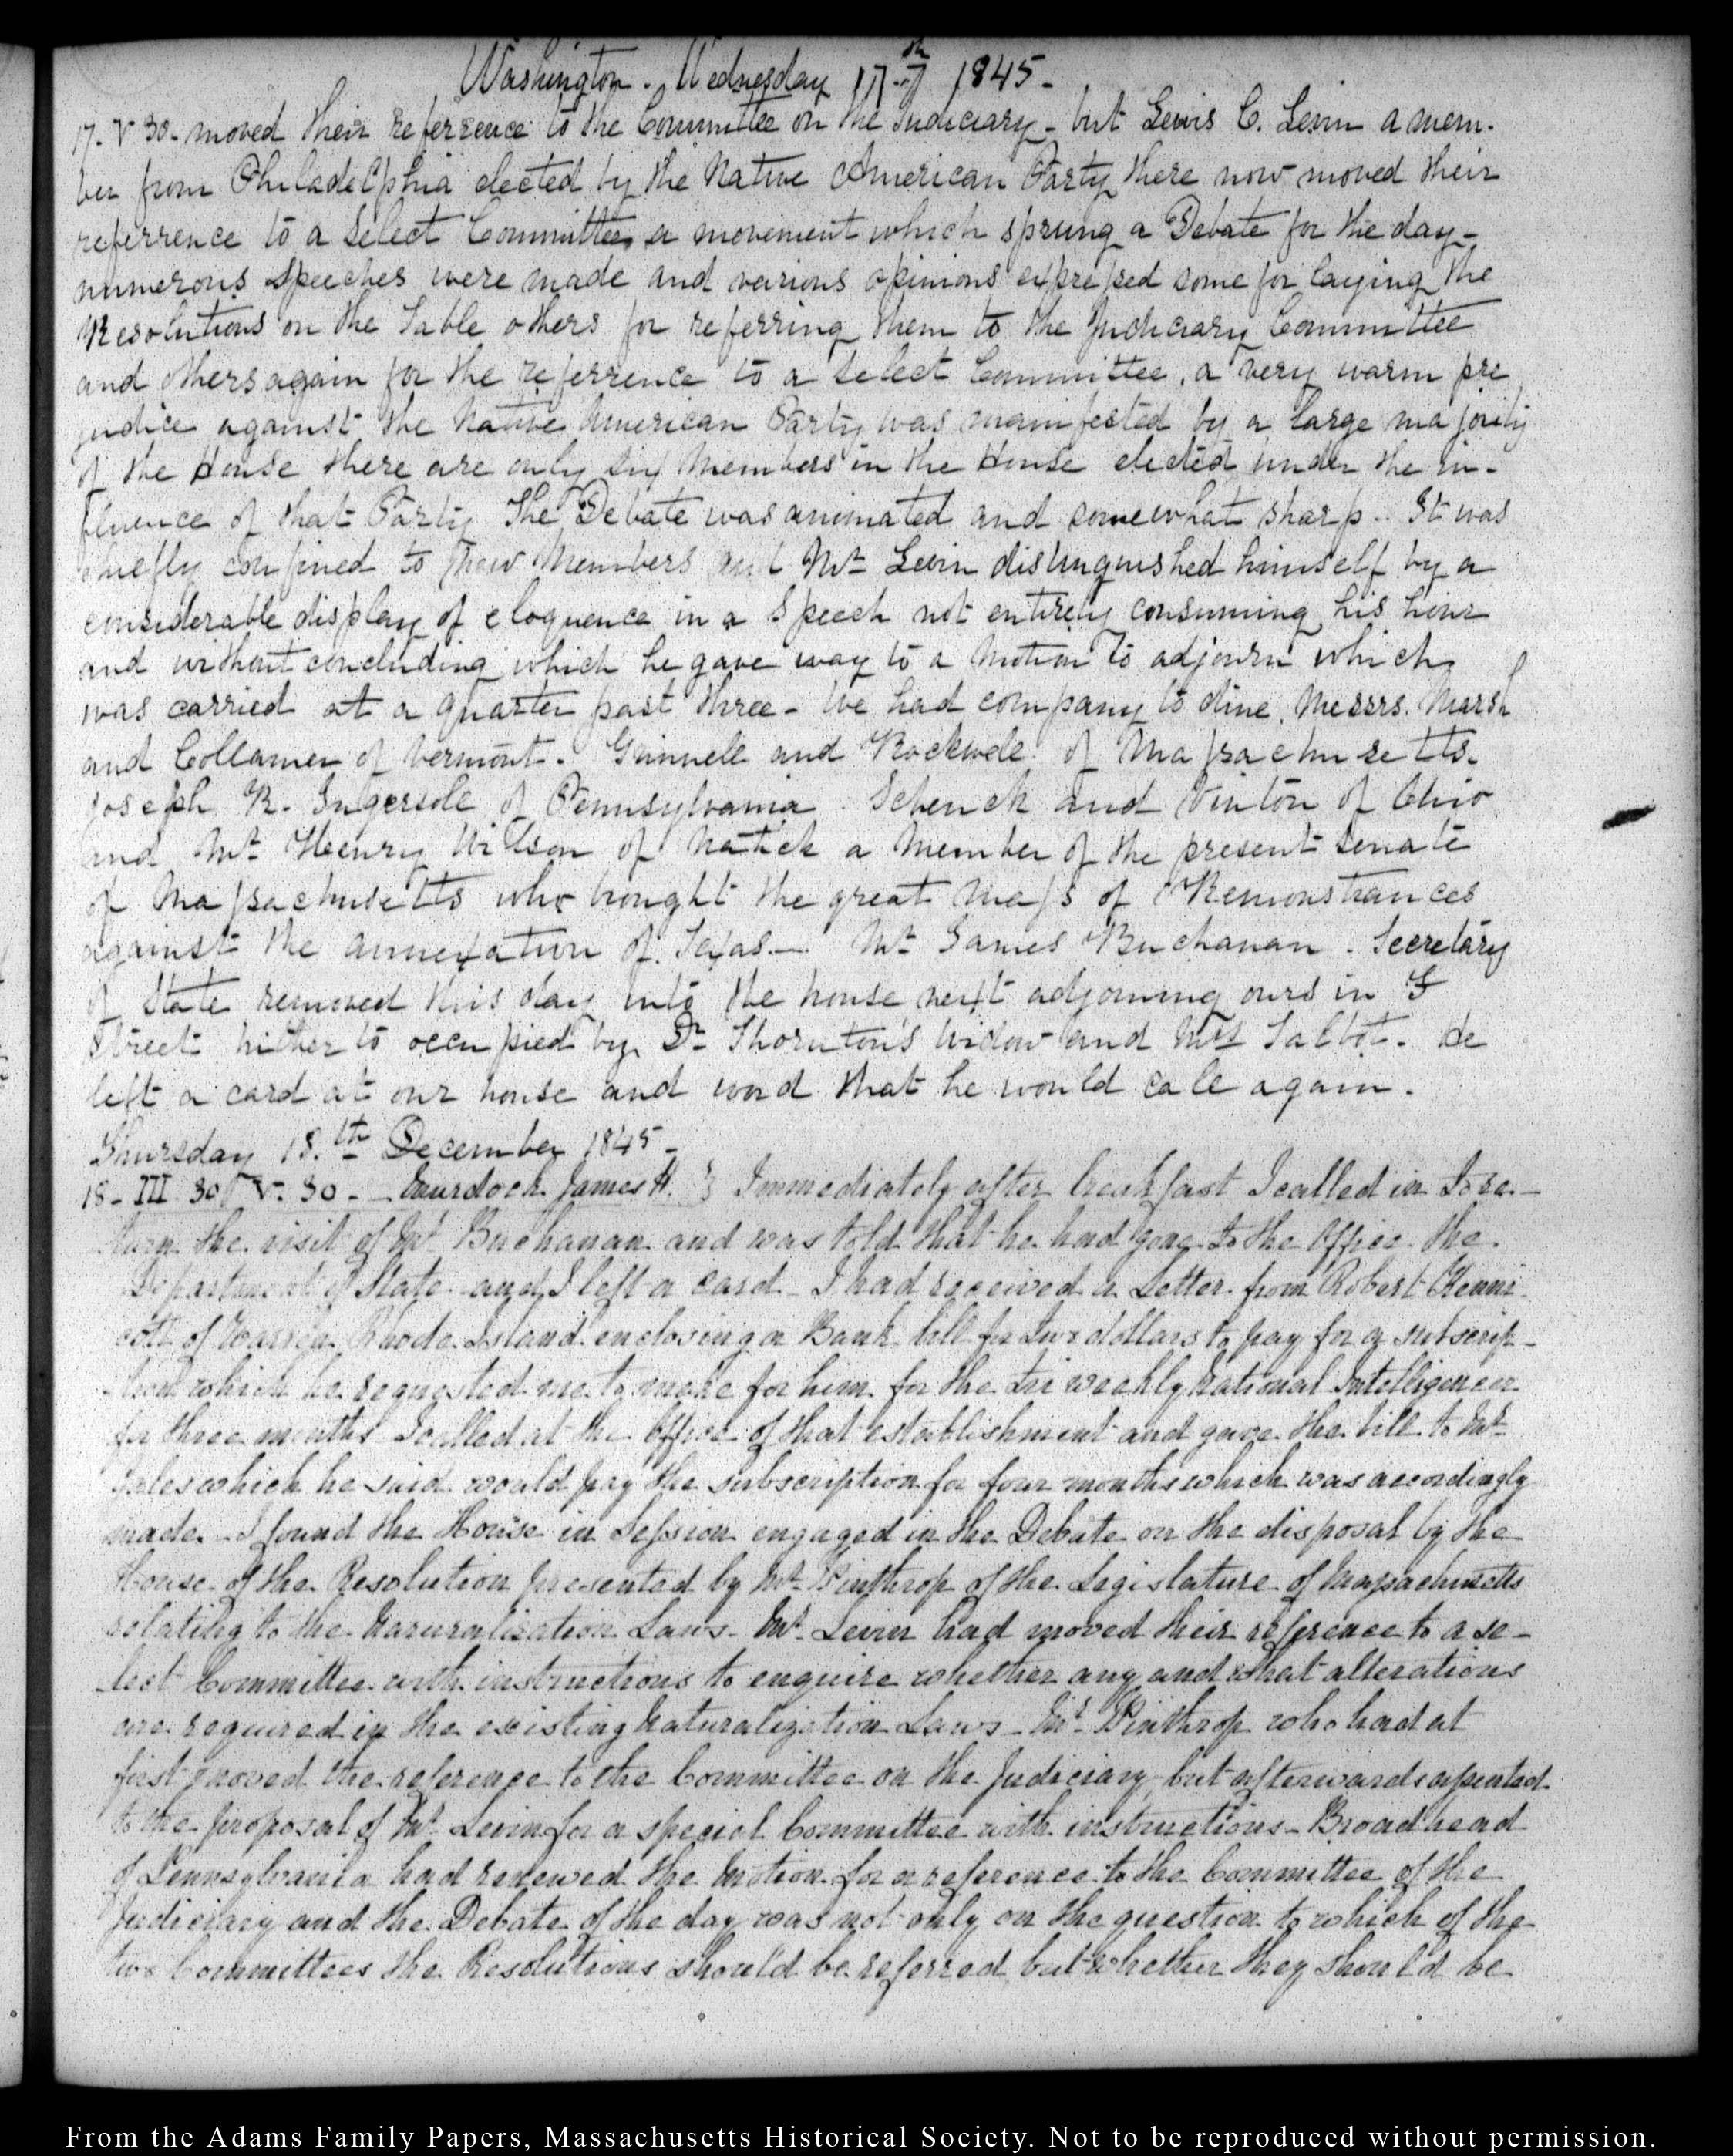 Washington. Wednesday 17th 1845-
17. V 30. moved their referrence to the Committee on the Judiciary - but Lewis C. Levin a mem-
ber from Philadelphia elected by the Native American Party there now moved their
referrence to a Select Committee, a movement which sprung a Debate for the day-
numerous speeches were made and various opinions expressed some for laying the
Resolutions on the Table others for referring them to the Judiciary Committee
and others again for the referrence to a Select Committee, a very warm pre
judice against the Native American Party was manifested by a large majority
of the House there are only six Members in the House elected under the in-
fluence of that Party. The Debate was animated and somewhat sharp.. It was
chiefly confined to new Members and Mr. Levin distinguished himself by a
considerable display of eloquence in a Speech not entirely consuming his hour
and without concluding which he gave way to a Motion to adjourn which
was carried at a quarter past three - We had company to dine, Messrs. Marsh
and Collamer of Vermont. Grinnell and Rockwell of Massachusetts.
Joseph R. Ingersoll of Pennsylvania. Schenck and Vinton of Ohio
and Mr. Henry Wilson of Natick a Member of the present Senate
of Massachusetts who brought the great Mass of Remonstrances
against the annexation of Texas.- Mr. James Buchanan. Secretary
of State removed this day into the house next adjoining ours in F
Street hitherto occupied by Dr. Thornton's widow and Mrs Talbot. He
left a card at our house and word that he would call again.
Thursday 18.th December 1845-
18- III 30 V. 30 - Murdock James H. } Immediately after breakfast I called in to re-
turn the visit of Mr. Buchanan and was told that he had gone to the Office the
Department of State and I left a card - I had received a Letter from Robert Kenni-
cott of Warren Rhode Island enclosing a Bank bill for two dollars to pay for a subscrip-
tion which he requested me to make for him for the tri weekly National Intelligencer
for three months I called at the Office of that establishment and gave the bill to Mr.
Gales which he said would pay the subscription for four months which was accordingly
made - I found the House in Session engaged in the Debate on the disposal by the
House of the Resolution presented by Mr. Winthrop of the Legislature of Massachusetts
relating to the Naturalization Laws - Mr. Levin had moved their reference to a se-
lect Committee with instructions to enquire whether any and what alterations
are required in the existing Naturalization Laws - Mr. Winthrop who had at
first moved the reference to the Committee on the Judiciary, but afterwards assented
to the proposal of Mr. Levin for a special Committee with instructions - Broadhead
of Pennsylvania had renewed the Motion for a reference to the Committee of the
Judiciary and the Debate of the day was not only on the question to which of the
two Committees the Resolutions should be referred but whether they should be
From the Adams Family Papers, Massachusetts Historical Society. Not to be reproduced without permission.